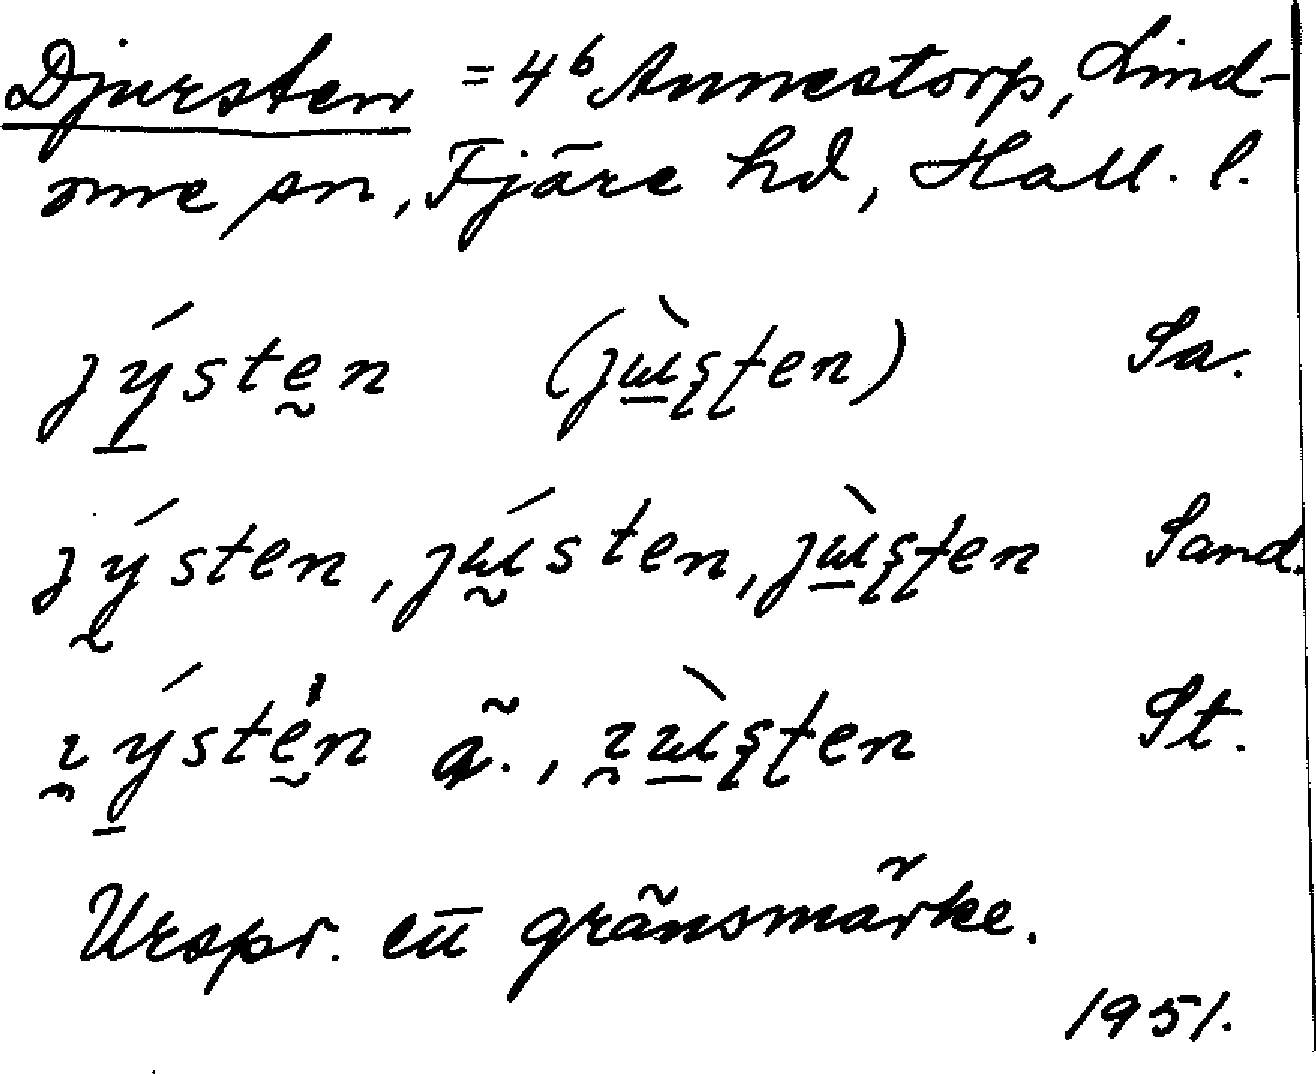 Djursten = 4b Annestorp, Lind-
ome sn, Fjäre hd, Hall. l.
jýsten (jɯ̀ʂʈen) Sa.
jýsten, jɯ́sten, jɯ̀ʂʈen Sand.
ɿýstén ã., ɿɯ̀ʂʈen St.
Urspr. ett gränsmärke.
1951.